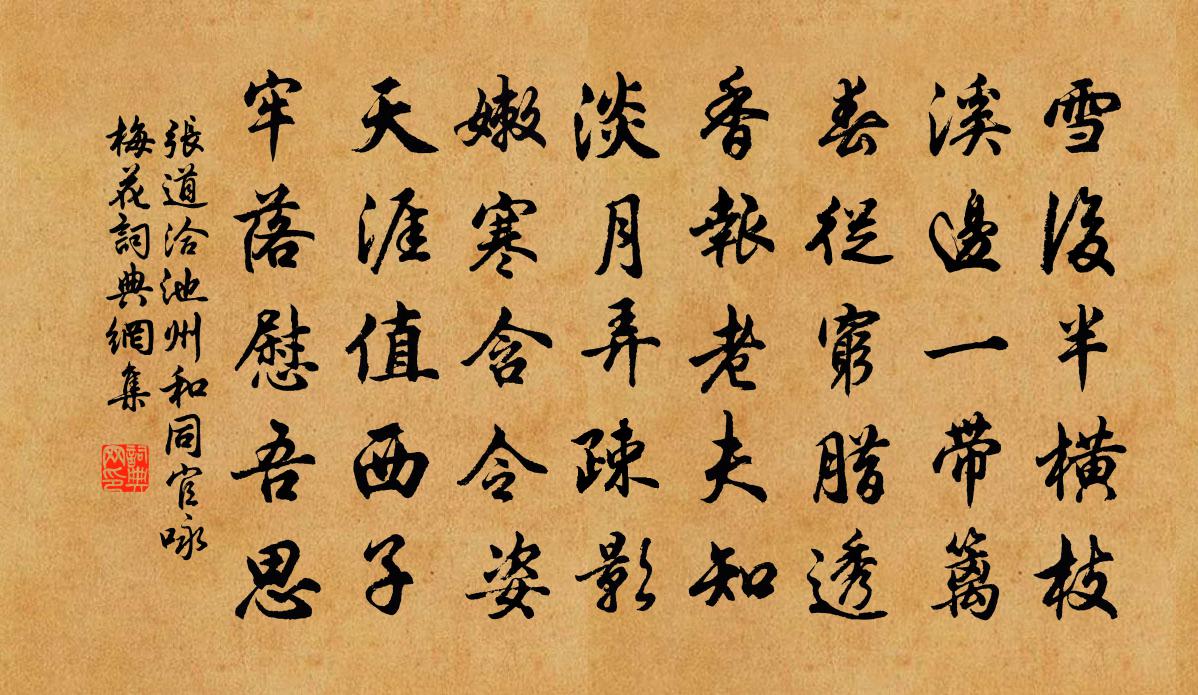 雪後半橫枝
溪邊一帶籬
春從窮腊透
香報老夫知
淡月弄疎影
嫩寒含令姿
天涯值西子
牢落慰吾思
張道洽池州和同官咏
梅花詞典網集
詞典網印